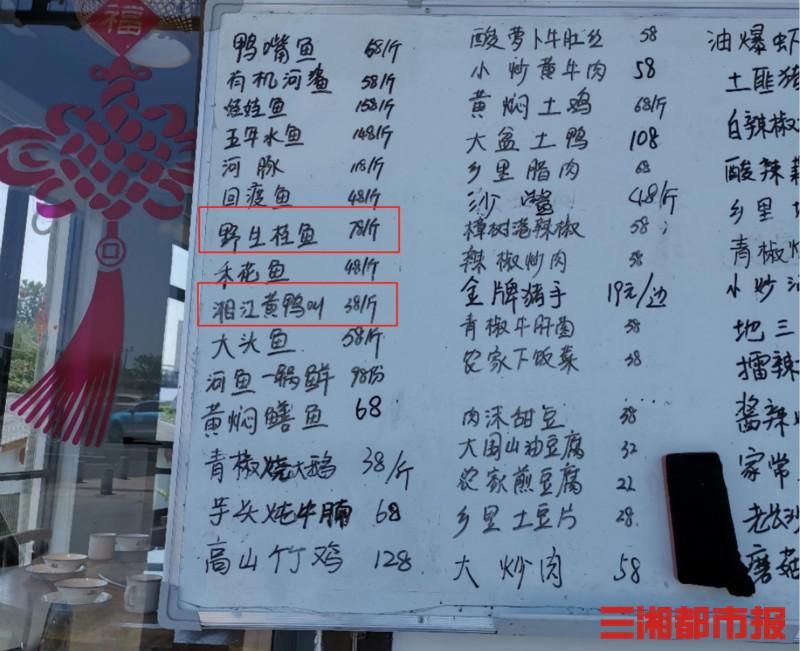 福
鸭嘴鱼 68/斤
有机河鲨 58/斤
娃娃鱼 158/斤
玉华水鱼 148/斤
河豚 118/斤
回疲鱼 48/斤
野生桂鱼 78/斤
禾花鱼 48/斤
湘江黄鸭叫 38/斤
大头鱼 58/斤
河鱼一锅鲜 98/份
黄焖鳝鱼 68
青椒烧大鹅 38/斤
芋头炖牛腩 68
高山竹鸡 128
酸萝卜牛肚丝 58
小炒黄牛肉 58
黄焖土鸡 68/斤
大盆土鸭 108
乡里腊肉 68
沙 48/斤
樟树港辣椒 58
辣椒炒肉 58
金牌猪手 19元/边
青椒牛肝菌 58
农家下饭菜 38
肉沫甜豆 38
大围山油豆腐 32
农家煎豆腐 22
乡里土豆片 28
大炒肉 58
油爆虾
土匪猪
白辣椒
酸辣
乡里
青椒
小炒
地三
擂辣
酱辣
家常
老长沙
磨菇
三湘都市报